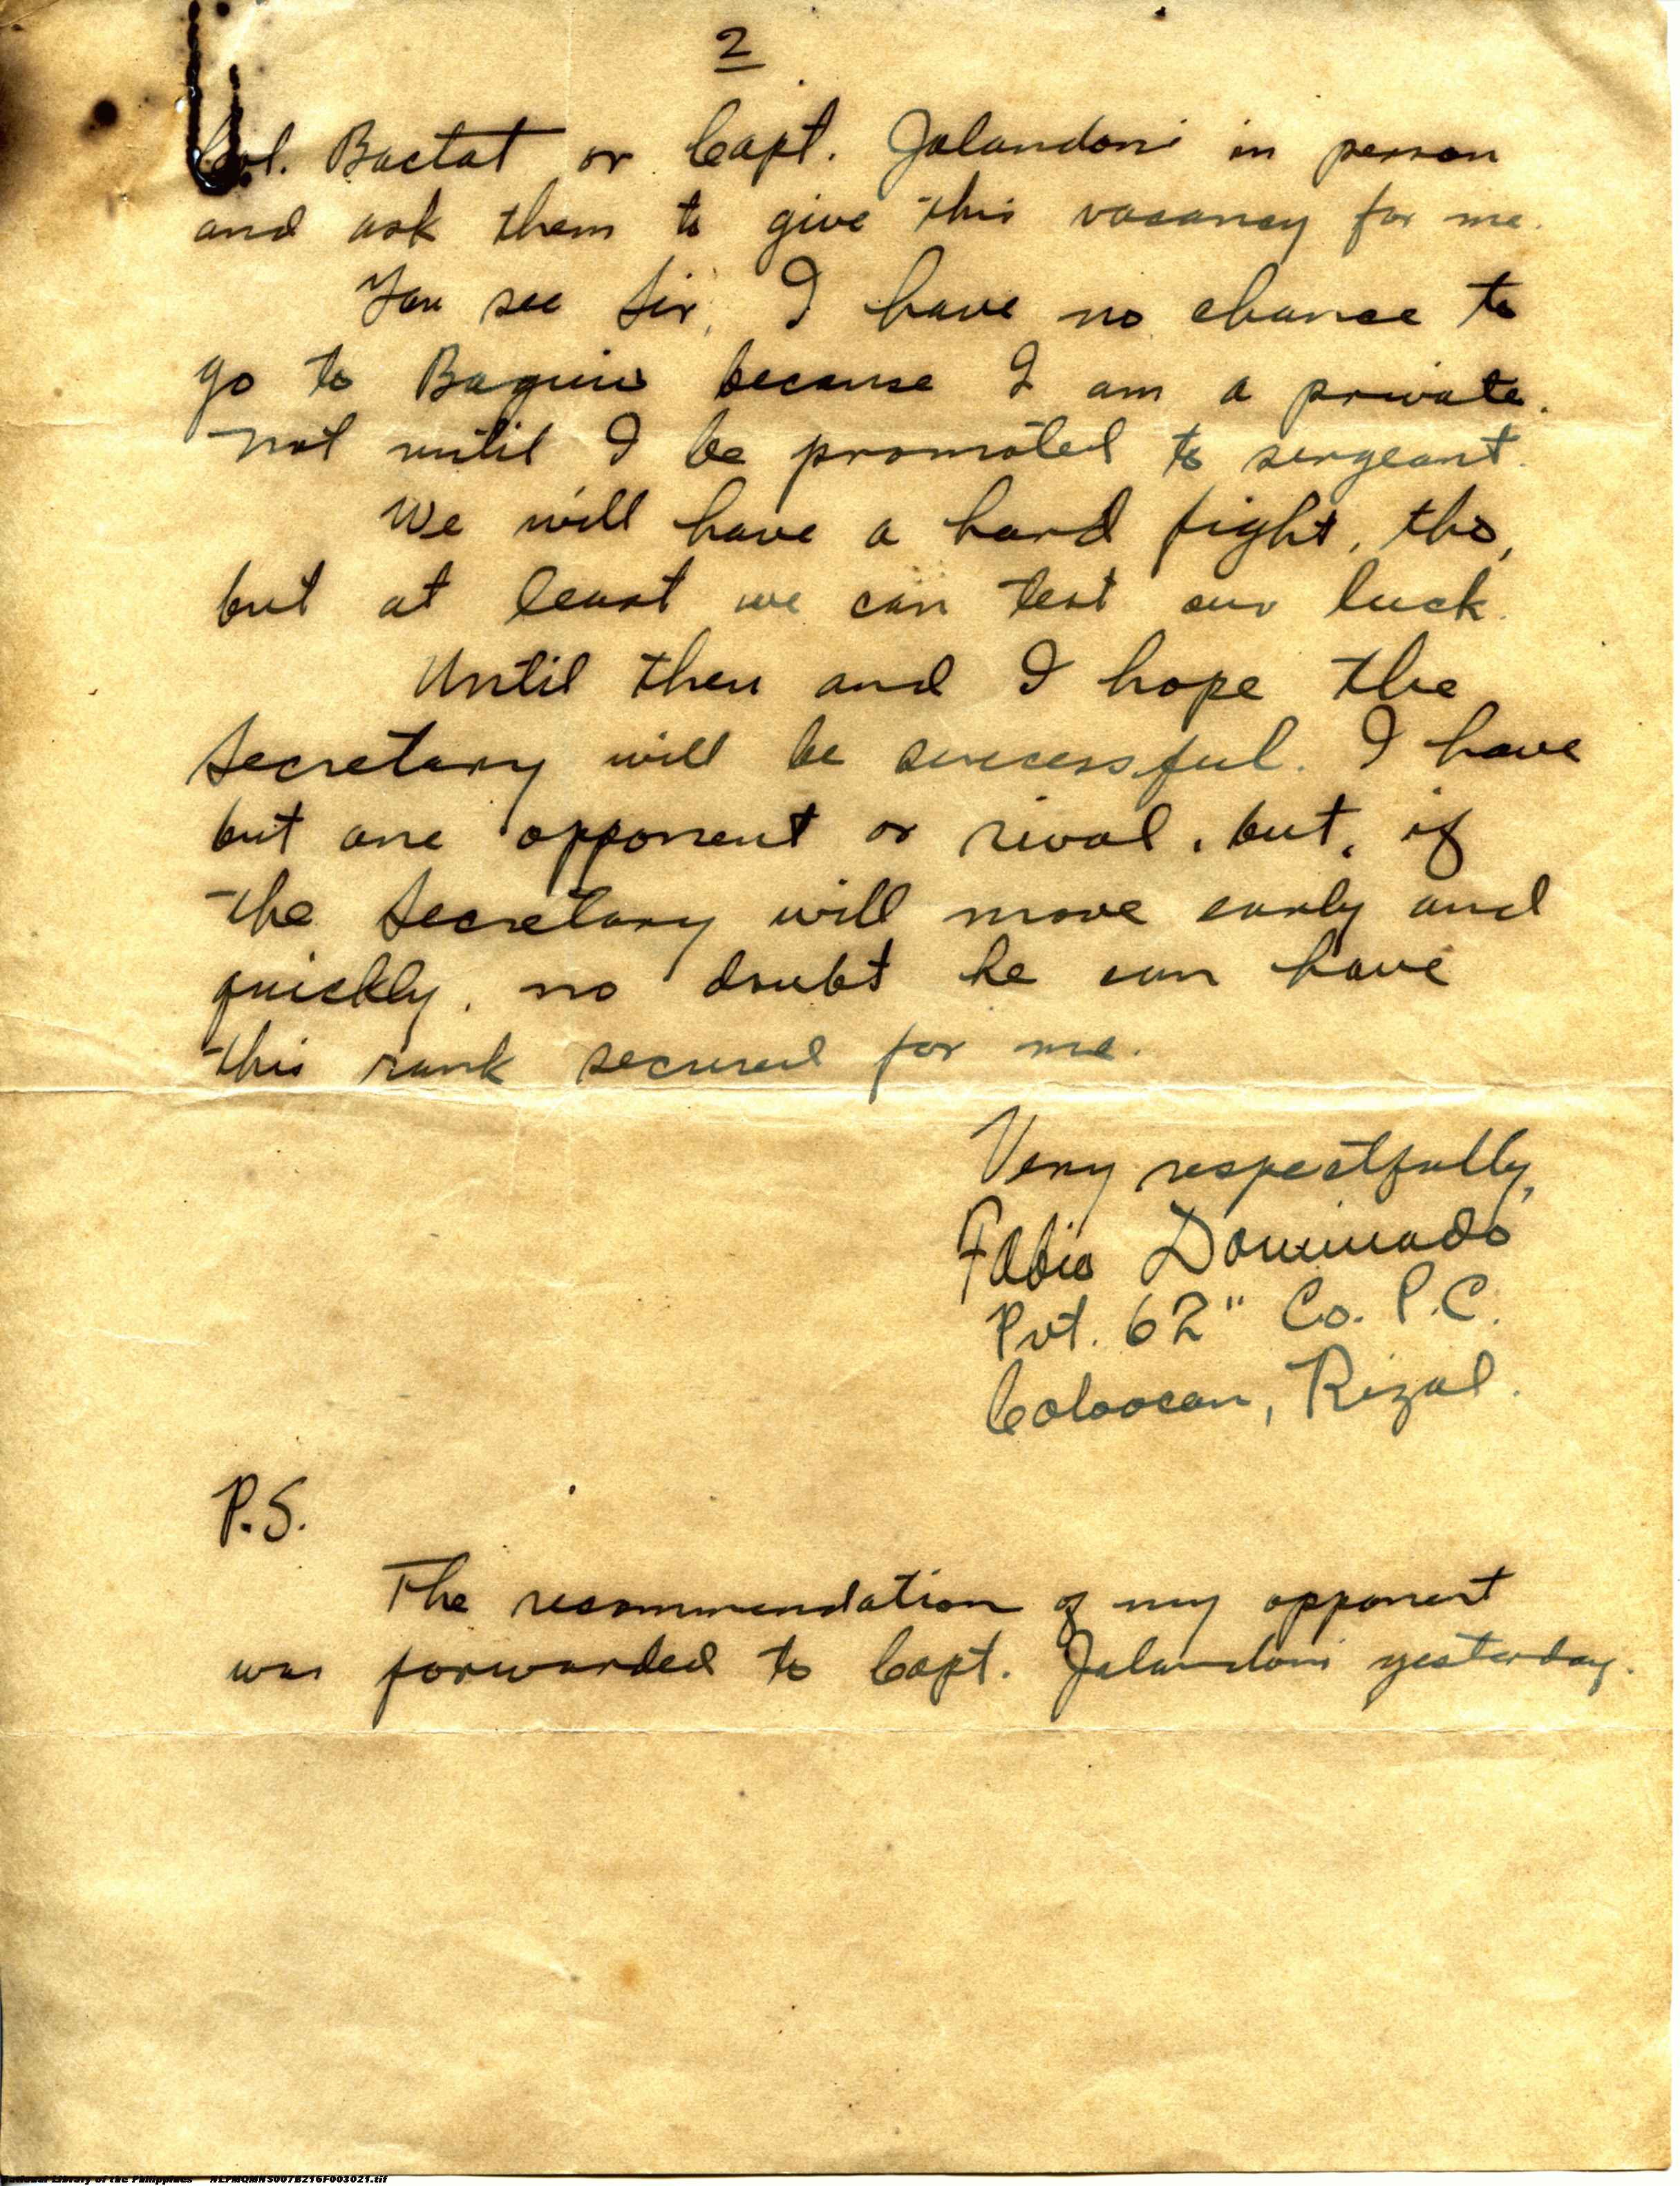 2
Col. Bactat or Capt. Jalandoni in person
and ask them to give this vacancy for me.
You see Sir, I have no chance to
go to Baguio because I am a private.
not until I be promoted to sergeant.
We will have a hard fight, tho,
but at least we can test our luck.
Until then and I hope the
Secretary will be successful. I have
but one opponent or rival, but, if
the Secretary will move early and
quickly, no doubt he can have
this rank secured for me.
Very respectfully,
Fabio Dominado
Pvt. 62" Co. P.C.
Caloocan, Rizal.
P.S.
The recommendation of my opponent
was forwarded to Capt. Jalandoni yesterday.
National Library of the Philippines NLPMQMNS007B216F003021.tif